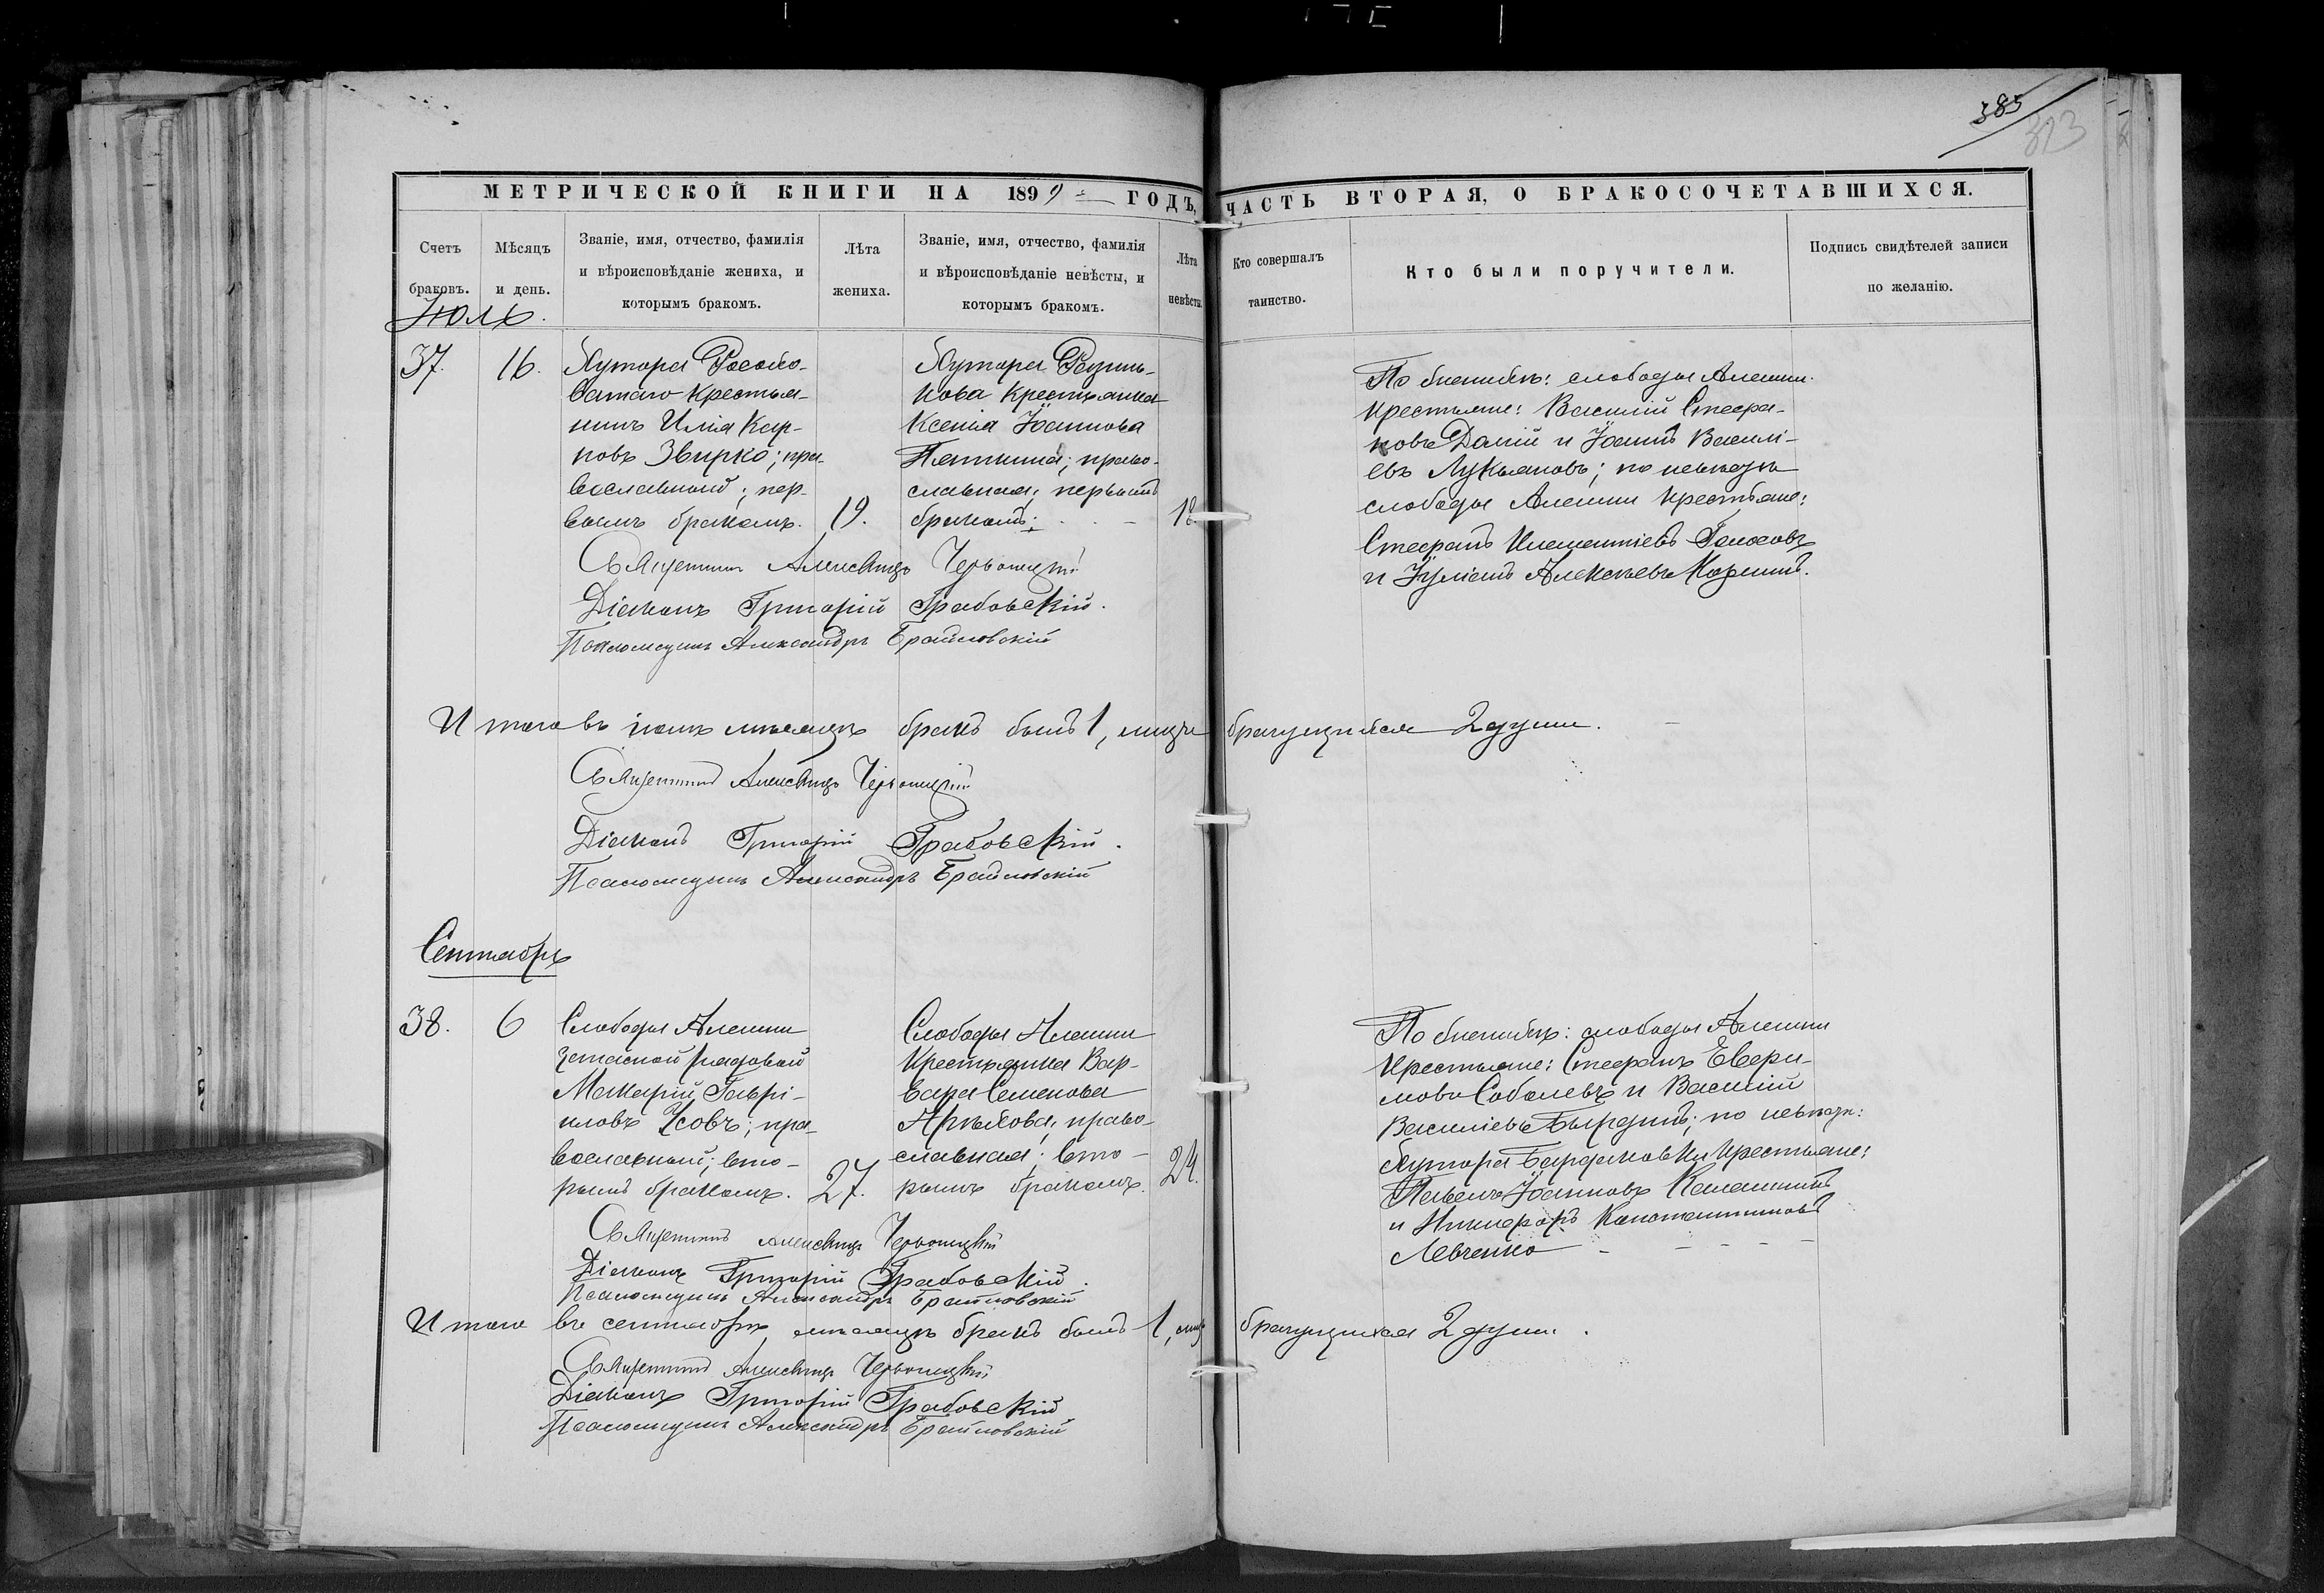 385
313
МЕТРИЧЕСКОЙ КНИГИ НА 1899 ГОДЪ, ЧАСТЬ ВТОРАЯ, О БРАКОСОЧЕТАВШИХСЯ.
Счетъ браковъ.
Мѣсяцъ и день.
Званіе, имя, отчество, фамилія и вѣроисповѣданіе жениха, и которымъ бракомъ.
Лѣта жениха.
Званіе, имя, отчество, фамилія и вѣроисповѣданіе невѣсты, и которымъ бракомъ.
Лѣта невѣсты.
Кто совершалъ таинство.
Кто были поручители.
Подпись свидѣтелей записи по желанію.
Іюль.
37.
16.
Хутора
ватаго крестья-
нинъ Илія Кар-
повъ Звирко; пра-
вославный; пер-
вымъ бракомъ.
19.
Хутора
кова крестьянка
Ксенія Іоаннова
право-
славная; первымъ
бракомъ;
18.
По женихѣ: слободы Алешки
крестьяне: Василій Стефа-
новъ и Іоаннъ Василі-
евъ Лукьяновъ; по невѣстѣ
слободы Алешки крестьяне:
Стефанъ Климентіевъ Голосовъ
и Іуліанъ Алексѣевъ
Священникъ Александръ
Діаконъ Григорій Грабовскій.
Псаломщикъ Александръ Браиловскій
Итого въ іюлѣ мѣсяцѣ бракъ былъ 1, лицъ брачущихся 2 души.
Священникъ Александръ
Діаконъ Григорій Грабовскій.
Псаломщикъ Александръ Браиловскій
Сентябрь
38.
6
Слободы Алешки
запасной рядовой
Макарій Гаврі-
иловъ Усовъ; пра-
вославный; вто-
рымъ бракомъ.
27.
Слободы Алешки
крестьянка Вар-
вара Семенова
право-
славная; вто-
рымъ бракомъ.
24.
По женихѣ: слободы Алешки
крестьяне: Стефанъ Евфи-
мовъ Соболевъ и Василій
Василіевъ по невѣстѣ:
хутора Бардаковки крестьяне:
Павелъ Іоанновъ Калашникъ
и Никифоръ Константиновъ
Левченко
Священникъ Александръ
Діаконъ Григорій Грабовскій.
Псаломщикъ Александръ Браиловскій
Итого въ сентябрѣ мѣсяцѣ бракъ былъ 1, лицъ брачущихся 2 души.
Священникъ Александръ
Діаконъ Григорій Грабовскій
Псаломщикъ Александръ Браиловскій